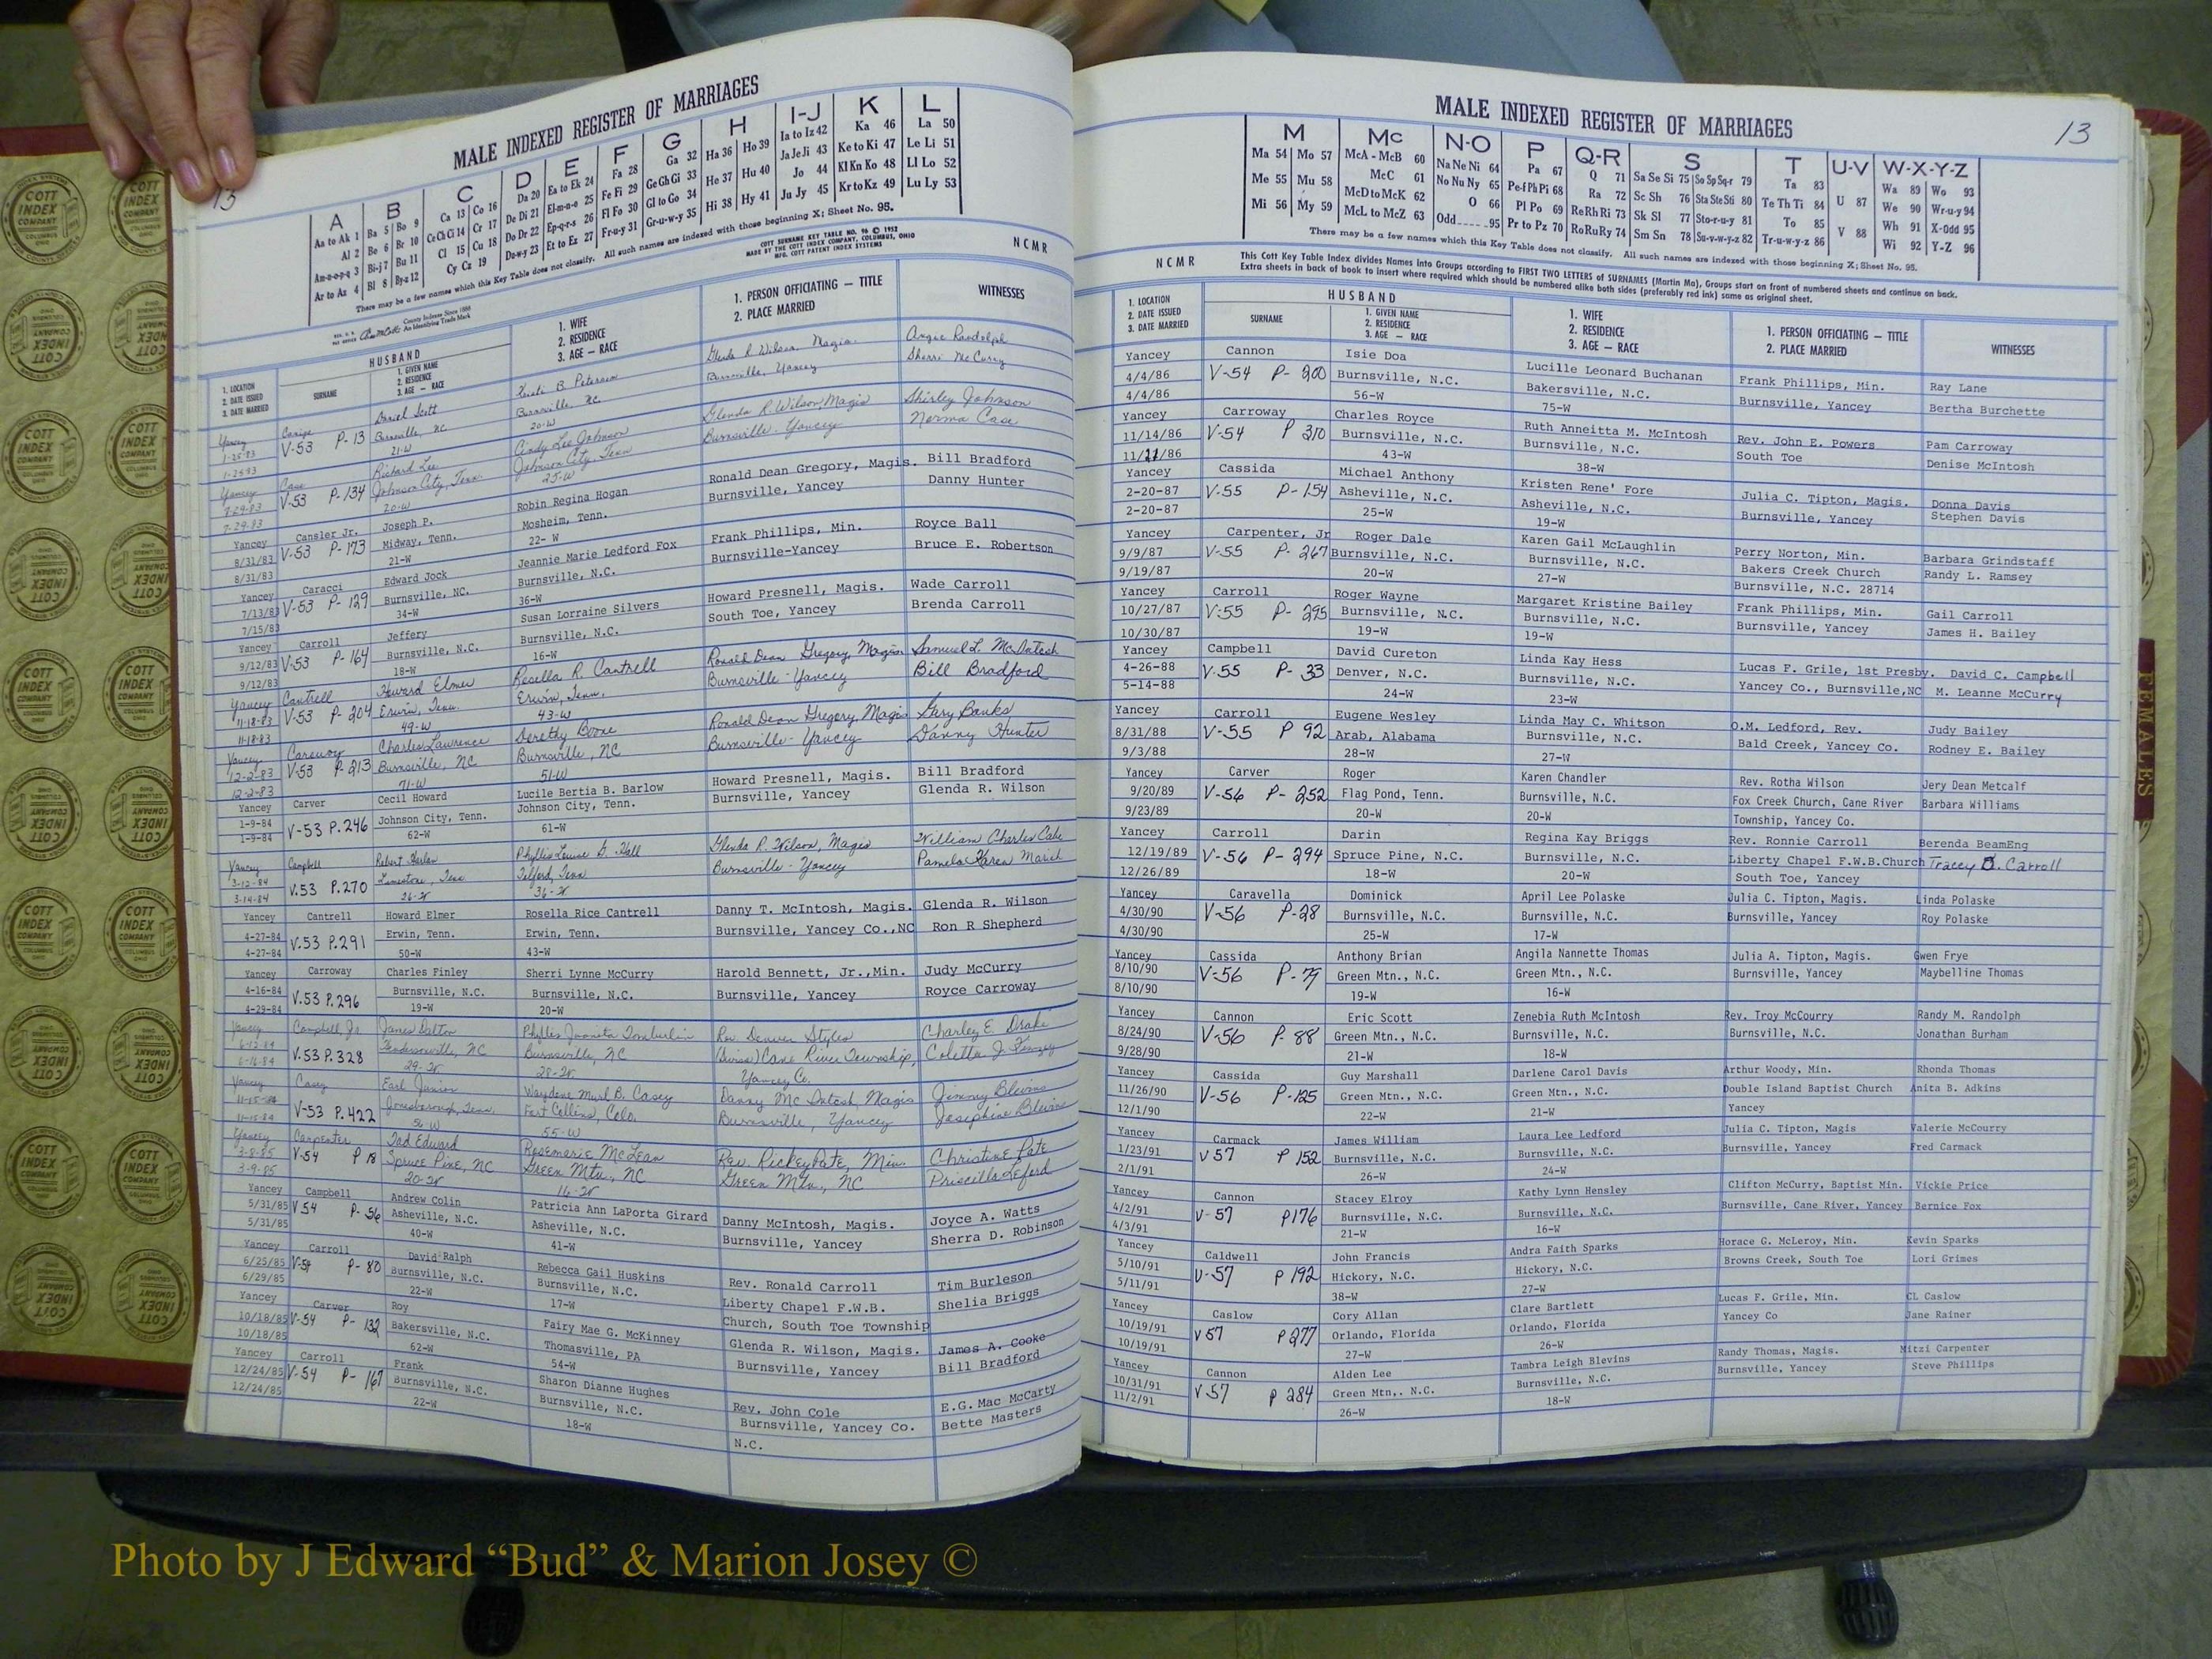 MALE INDEXED REGISTER OF MARRIAGES
13
A B C D E F G H I-J K L
Aa to Ak 1 Ba 5 Bo 9 Ca 13 Co 16 Da 20 Ea to Ek 24 Fa 28 Ga 32 Ha 36 Ho 39 Ia to Iz 42 Ka 46 La 50
Al 2 Be 6 Br 10 Ce Ch Ci 14 Cr 17 De Di 21 El-m-n-o 25 Fe Fi 29 Ge Gh Gi 33 He 37 Hu 40 Ja Je Ji 43 Ke to Ki 47 Le Li 51
Am-n-o-p-q 3 Bi-j 7 Bu 11 Cl 15 Cu 18 Do Dr 22 Ep-q-r-s 26 Fl Fo 30 Gl to Go 34 Hi 38 Hy 41 Jo 44 Kl Kn Ko 48 Ll Lo 52
Ar to Az 4 Bl 8 By-z 12 Cy Cz 19 Du-w-y 23 Et to Ez 27 Fr-u-y 31 Gr-u-w-y 35 Ju Jy 45 Kr to Kz 49 Lu Ly 53
There may be a few names which this Key Table does not classify. All such names are indexed with those beginning X; Sheet No. 95.
COTT SURNAME KEY TABLE NO. 96 © 1952
MADE BY THE COTT INDEX COMPANY, COLUMBUS, OHIO
MFG. COTT PATENT INDEX SYSTEMS
NCMR
County Indexes Since 1888
An Identifying Trade Mark
1. LOCATION
2. DATE ISSUED
3. DATE MARRIED
HUSBAND
SURNAME
1. GIVEN NAME
2. RESIDENCE
3. AGE — RACE
1. WIFE
2. RESIDENCE
3. AGE — RACE
1. PERSON OFFICIATING — TITLE
2. PLACE MARRIED
WITNESSES
Yancey Daniel Scott Kristi B. Peterson Glenda R. Wilson, Magis. Angie Randolph
1-25-83 V-53 P-13 Burnsville, NC Burnsville, NC Burnsville, Yancey Sherri McCurry
21-W 20-W
Yancey Case Richard Lee Cindy Lee Johnson Glenda R. Wilson, Magis Shirley Johnson
7-29-83 V-53 P-134 Johnson City, Tenn. Johnson City, Tenn Burnsville - Yancey Norma Case
7-29-83 20-W 25-W
Yancey Cansler Jr. Joseph P. Robin Regina Hogan Ronald Dean Gregory, Magis. Bill Bradford
8/31/83 V-53 P-173 Midway, Tenn. Mosheim, Tenn. Burnsville, Yancey Danny Hunter
8/31/83 21-W 22- W
Yancey Caracci Edward Jock Jeannie Marie Ledford Fox Frank Phillips, Min. Royce Ball
7/13/83 V-53 P-129 Burnsville, NC. Burnsville, N.C. Burnsville-Yancey Bruce E. Robertson
7/15/83 34-W 36-W
Yancey Carroll Jeffery Susan Lorraine Silvers Howard Presnell, Magis. Wade Carroll
9/12/83 V-53 P-164 Burnsville, N.C. Burnsville, N.C. South Toe, Yancey Brenda Carroll
9/12/83 18-W 16-W
Yancey Cantrell Howard Elmer Rosella R. Cantrell Ronald Dean Gregory, Magis. Samuel L. McIntosh
11-18-83 V-53 P-204 Erwin, Tenn. Erwin, Tenn. Burnsville - Yancey Bill Bradford
11-18-83 49-W 43-W
Yancey Caraway Charles Lawrence Dorothy Boone Ronald Dean Gregory, Magis Gary Banks
12-2-83 V-53 P-213 Burnsville, NC Burnsville, NC Burnsville - Yancey Danny Hunter
12-2-83 71-W 51-W
Yancey Carver Cecil Howard Lucile Bertia B. Barlow Howard Presnell, Magis. Bill Bradford
1-9-84 V-53 P.246 Johnson City, Tenn. Johnson City, Tenn. Burnsville, Yancey Glenda R. Wilson
1-9-84 62-W 61-W
Yancey Campbell Robert Harlan Phyllis Louise G. Hall Glenda R. Wilson, Magis William Charles Cable
3-12-84 V.53 P.270 Limestone, Tenn Telford, Tenn Burnsville - Yancey Pamela Karen March
3-14-84 26-W 36-W
Yancey Cantrell Howard Elmer Rosella Rice Cantrell Danny T. McIntosh, Magis. Glenda R. Wilson
4-27-84 V.53 P.291 Erwin, Tenn. Erwin, Tenn. Burnsville, Yancey Co.,NC Ron R Shepherd
4-27-84 50-W 43-W
Yancey Carroway Charles Finley Sherri Lynne McCurry Harold Bennett, Jr.,Min. Judy McCurry
4-16-84 V.53 P.296 Burnsville, N.C. Burnsville, N.C. Burnsville, Yancey Royce Carroway
4-29-84 19-W 20-W
Yancey Campbell, Jr. James Dalton Phyllis Juanita Tomberlin Rev Denver Styles Charley E. Drake
6-12-84 V.53 P.328 Hendersonville, NC Burnsville, NC Cane River Township, Coletta J.
6-16-84 29-W 28-W Yancey Co.
Yancey Casey Earl Junior Waydene Murl B. Casey Danny McIntosh, Magis Jimmy Blevins
11-15-84 V-53 P.422 Jonesborough, Tenn. Fort Collins, Colo. Burnsville, Yancey Josephine Blevins
11-15-84 56-W 55-W
Yancey Carpenter Tad Edward Rosemarie McLean Rev. Rickey Pate, Min Christine Pate
3-8-85 V-54 P 18 Spruce Pine, NC Green Mtn., NC Green Mtn., NC Priscilla Leford
3-9-85 20-W 16-W
Yancey Campbell Andrew Colin Patricia Ann LaPorta Girard Danny McIntosh, Magis. Joyce A. Watts
5/31/85 V 54 P-56 Asheville, N.C. Asheville, N.C. Burnsville, Yancey Sherra D. Robinson
5/31/85 40-W 41-W
Yancey Carroll David Ralph Rebecca Gail Huskins Rev. Ronald Carroll Tim Burleson
6/25/85 V-54 P-80 Burnsville, N.C. Burnsville, N.C. Liberty Chapel F.W.B. Shelia Briggs
6/29/85 22-W 17-W Church, South Toe Township
Yancey Carver Roy Fairy Mae G. McKinney Glenda R. Wilson, Magis. James A. Cooke
10/18/85 V-54 P-132 Bakersville, N.C. Thomasville, PA Burnsville, Yancey Bill Bradford
10/18/85 62-W 54-W
Yancey Carroll Frank Sharon Dianne Hughes Rev. John Cole E.G. Mac McCarty
12/24/85 V-54 P-167 Burnsville, N.C. Burnsville, N.C. Burnsville, Yancey Co. Bette Masters
12/24/85 22-W 18-W N.C.
MALE INDEXED REGISTER OF MARRIAGES
13
M Mc N-O P Q-R S T U-V W-X-Y-Z
Ma 54 Mo 57 McA - McB 60 Na Ne Ni 64 Pa 67 Q 71 Sa Se Si 75 So Sp Sq-r 79 Ta 83 U 87 Wa 89 Wo 93
Me 55 Mu 58 McC 61 No Nu Ny 65 Pe-f Ph Pi 68 Ra 72 Sc Sh 76 Sta Ste Sti 80 Te Th Ti 84 V 88 We 90 Wr-u-y 94
Mi 56 My 59 McD to McK 62 O 66 Pl Po 69 Re Rh Ri 73 Sk Sl 77 Sto-r-u-y 81 To 85 Wh 91 X-Odd 95
McL to McZ 63 Odd 95 Pr to Pz 70 Ro Ru Ry 74 Sm Sn 78 Su-v-w-y-z 82 Tr-u-w-y-z 86 Wi 92 Y-Z 96
There may be a few names which this Key Table does not classify. All such names are indexed with those beginning X; Sheet No. 95.
NCMR
This Cott Key Table Index divides Names into Groups according to FIRST TWO LETTERS of SURNAMES (Martin Ma), Groups start on front of numbered sheets and continue on back.
Extra sheets in back of book to insert where required which should be numbered alike both sides (preferably red ink) same as original sheet.
1. LOCATION
2. DATE ISSUED
3. DATE MARRIED
HUSBAND
SURNAME
1. GIVEN NAME
2. RESIDENCE
3. AGE — RACE
1. WIFE
2. RESIDENCE
3. AGE — RACE
1. PERSON OFFICIATING — TITLE
2. PLACE MARRIED
WITNESSES
Yancey Cannon Isie Doa Lucille Leonard Buchanan Frank Phillips, Min. Ray Lane
4/4/86 V-54 P-200 Burnsville, N.C. Bakersville, N.C. Burnsville, Yancey Bertha Burchette
4/4/86 56-W 75-W
Yancey Carroway Charles Royce Ruth Anneitta M. McIntosh Rev. John E. Powers Pam Carroway
11/14/86 V-54 P 310 Burnsville, N.C. Burnsville, N.C. South Toe Denise McIntosh
11/21/86 43-W 38-W
Yancey Cassida Michael Anthony Kristen Rene' Fore Julia C. Tipton, Magis. Donna Davis
2-20-87 V-55 P-154 Asheville, N.C. Asheville, N.C. Burnsville, Yancey Stephen Davis
2-20-87 25-W 19-W
Yancey Carpenter, Jr Roger Dale Karen Gail McLaughlin Perry Norton, Min. Barbara Grindstaff
9/9/87 V-55 P-267 Burnsville, N.C. Burnsville, N.C. Bakers Creek Church Randy L. Ramsey
9/19/87 20-W 27-W Burnsville, N.C. 28714
Yancey Carroll Roger Wayne Margaret Kristine Bailey Frank Phillips, Min. Gail Carroll
10/27/87 V-55 P-295 Burnsville, N.C. Burnsville, N.C. Burnsville, Yancey James H. Bailey
10/30/87 19-W 19-W
Yancey Campbell David Cureton Linda Kay Hess Lucas F. Grile, 1st Presby. David C. Campbell
4-26-88 V-55 P-33 Denver, N.C. Burnsville, N.C. Yancey Co., Burnsville,NC M. Leanne McCurry
5-14-88 24-W 23-W
Yancey Carroll Eugene Wesley Linda May C. Whitson O.M. Ledford, Rev. Judy Bailey
8/31/88 V-55 P 92 Arab, Alabama Burnsville, N.C. Bald Creek, Yancey Co. Rodney E. Bailey
9/3/88 28-W 27-W
Yancey Carver Roger Karen Chandler Rev. Rotha Wilson Jery Dean Metcalf
9/20/89 V-56 P-252 Flag Pond, Tenn. Burnsville, N.C. Fox Creek Church, Cane River Barbara Williams
9/23/89 20-W 20-W Township, Yancey Co.
Yancey Carroll Darin Regina Kay Briggs Rev. Ronnie Carroll Berenda BeamEng
12/19/89 V-56 P-294 Spruce Pine, N.C. Burnsville, N.C. Liberty Chapel F.W.B.Church Tracey B. Carroll
12/26/89 18-W 20-W South Toe, Yancey
Yancey Caravella Dominick April Lee Polaske Julia C. Tipton, Magis. Linda Polaske
4/30/90 V-56 P-28 Burnsville, N.C. Burnsville, N.C. Burnsville, Yancey Roy Polaske
4/30/90 25-W 17-W
Yancey Cassida Anthony Brian Angila Nannette Thomas Julia A. Tipton, Magis. Gwen Frye
8/10/90 V-56 P-79 Green Mtn., N.C. Green Mtn., N.C. Burnsville, Yancey Maybelline Thomas
8/10/90 19-W 16-W
Yancey Cannon Eric Scott Zenebia Ruth McIntosh Rev. Troy McCourry Randy M. Randolph
8/24/90 V-56 P-88 Green Mtn., N.C. Burnsville, N.C. Burnsville, N.C. Jonathan Burham
9/28/90 21-W 18-W
Yancey Cassida Guy Marshall Darlene Carol Davis Arthur Woody, Min. Rhonda Thomas
11/26/90 V-56 P-125 Green Mtn., N.C. Green Mtn., N.C. Double Island Baptist Church Anita B. Adkins
12/1/90 22-W 21-W Yancey
Yancey Carmack James William Laura Lee Ledford Julia C. Tipton, Magis Valerie McCourry
1/23/91 V 57 P 152 Burnsville, N.C. Burnsville, N.C. Burnsville, Yancey Fred Carmack
2/1/91 26-W 24-W
Yancey Cannon Stacey Elroy Kathy Lynn Hensley Clifton McCurry, Baptist Min. Vickie Price
4/2/91 V-57 P176 Burnsville, N.C. Burnsville, N.C. Burnsville, Cane River, Yancey Bernice Fox
4/3/91 21-W 16-W
Yancey Caldwell John Francis Andra Faith Sparks Horace G. McLeroy, Min. Kevin Sparks
5/10/91 V-57 P 192 Hickory, N.C. Hickory, N.C. Browns Creek, South Toe Lori Grimes
5/11/91 38-W 27-W
Yancey Caslow Cory Allan Clare Bartlett Lucas F. Grile, Min. CL Caslow
10/19/91 V 57 P 277 Orlando, Florida Orlando, Florida Yancey Co Jane Rainer
10/19/91 27-W 26-W
Yancey Cannon Alden Lee Tambra Leigh Blevins Randy Thomas, Magis. Mitzi Carpenter
10/31/91 V 57 P 284 Green Mtn,. N.C. Burnsville, N.C. Burnsville, Yancey Steve Phillips
11/2/91 26-W 18-W
FEMALES
COTT INDEX COMPANY COLUMBUS OHIO
Photo by J Edward “Bud” & Marion Josey ©